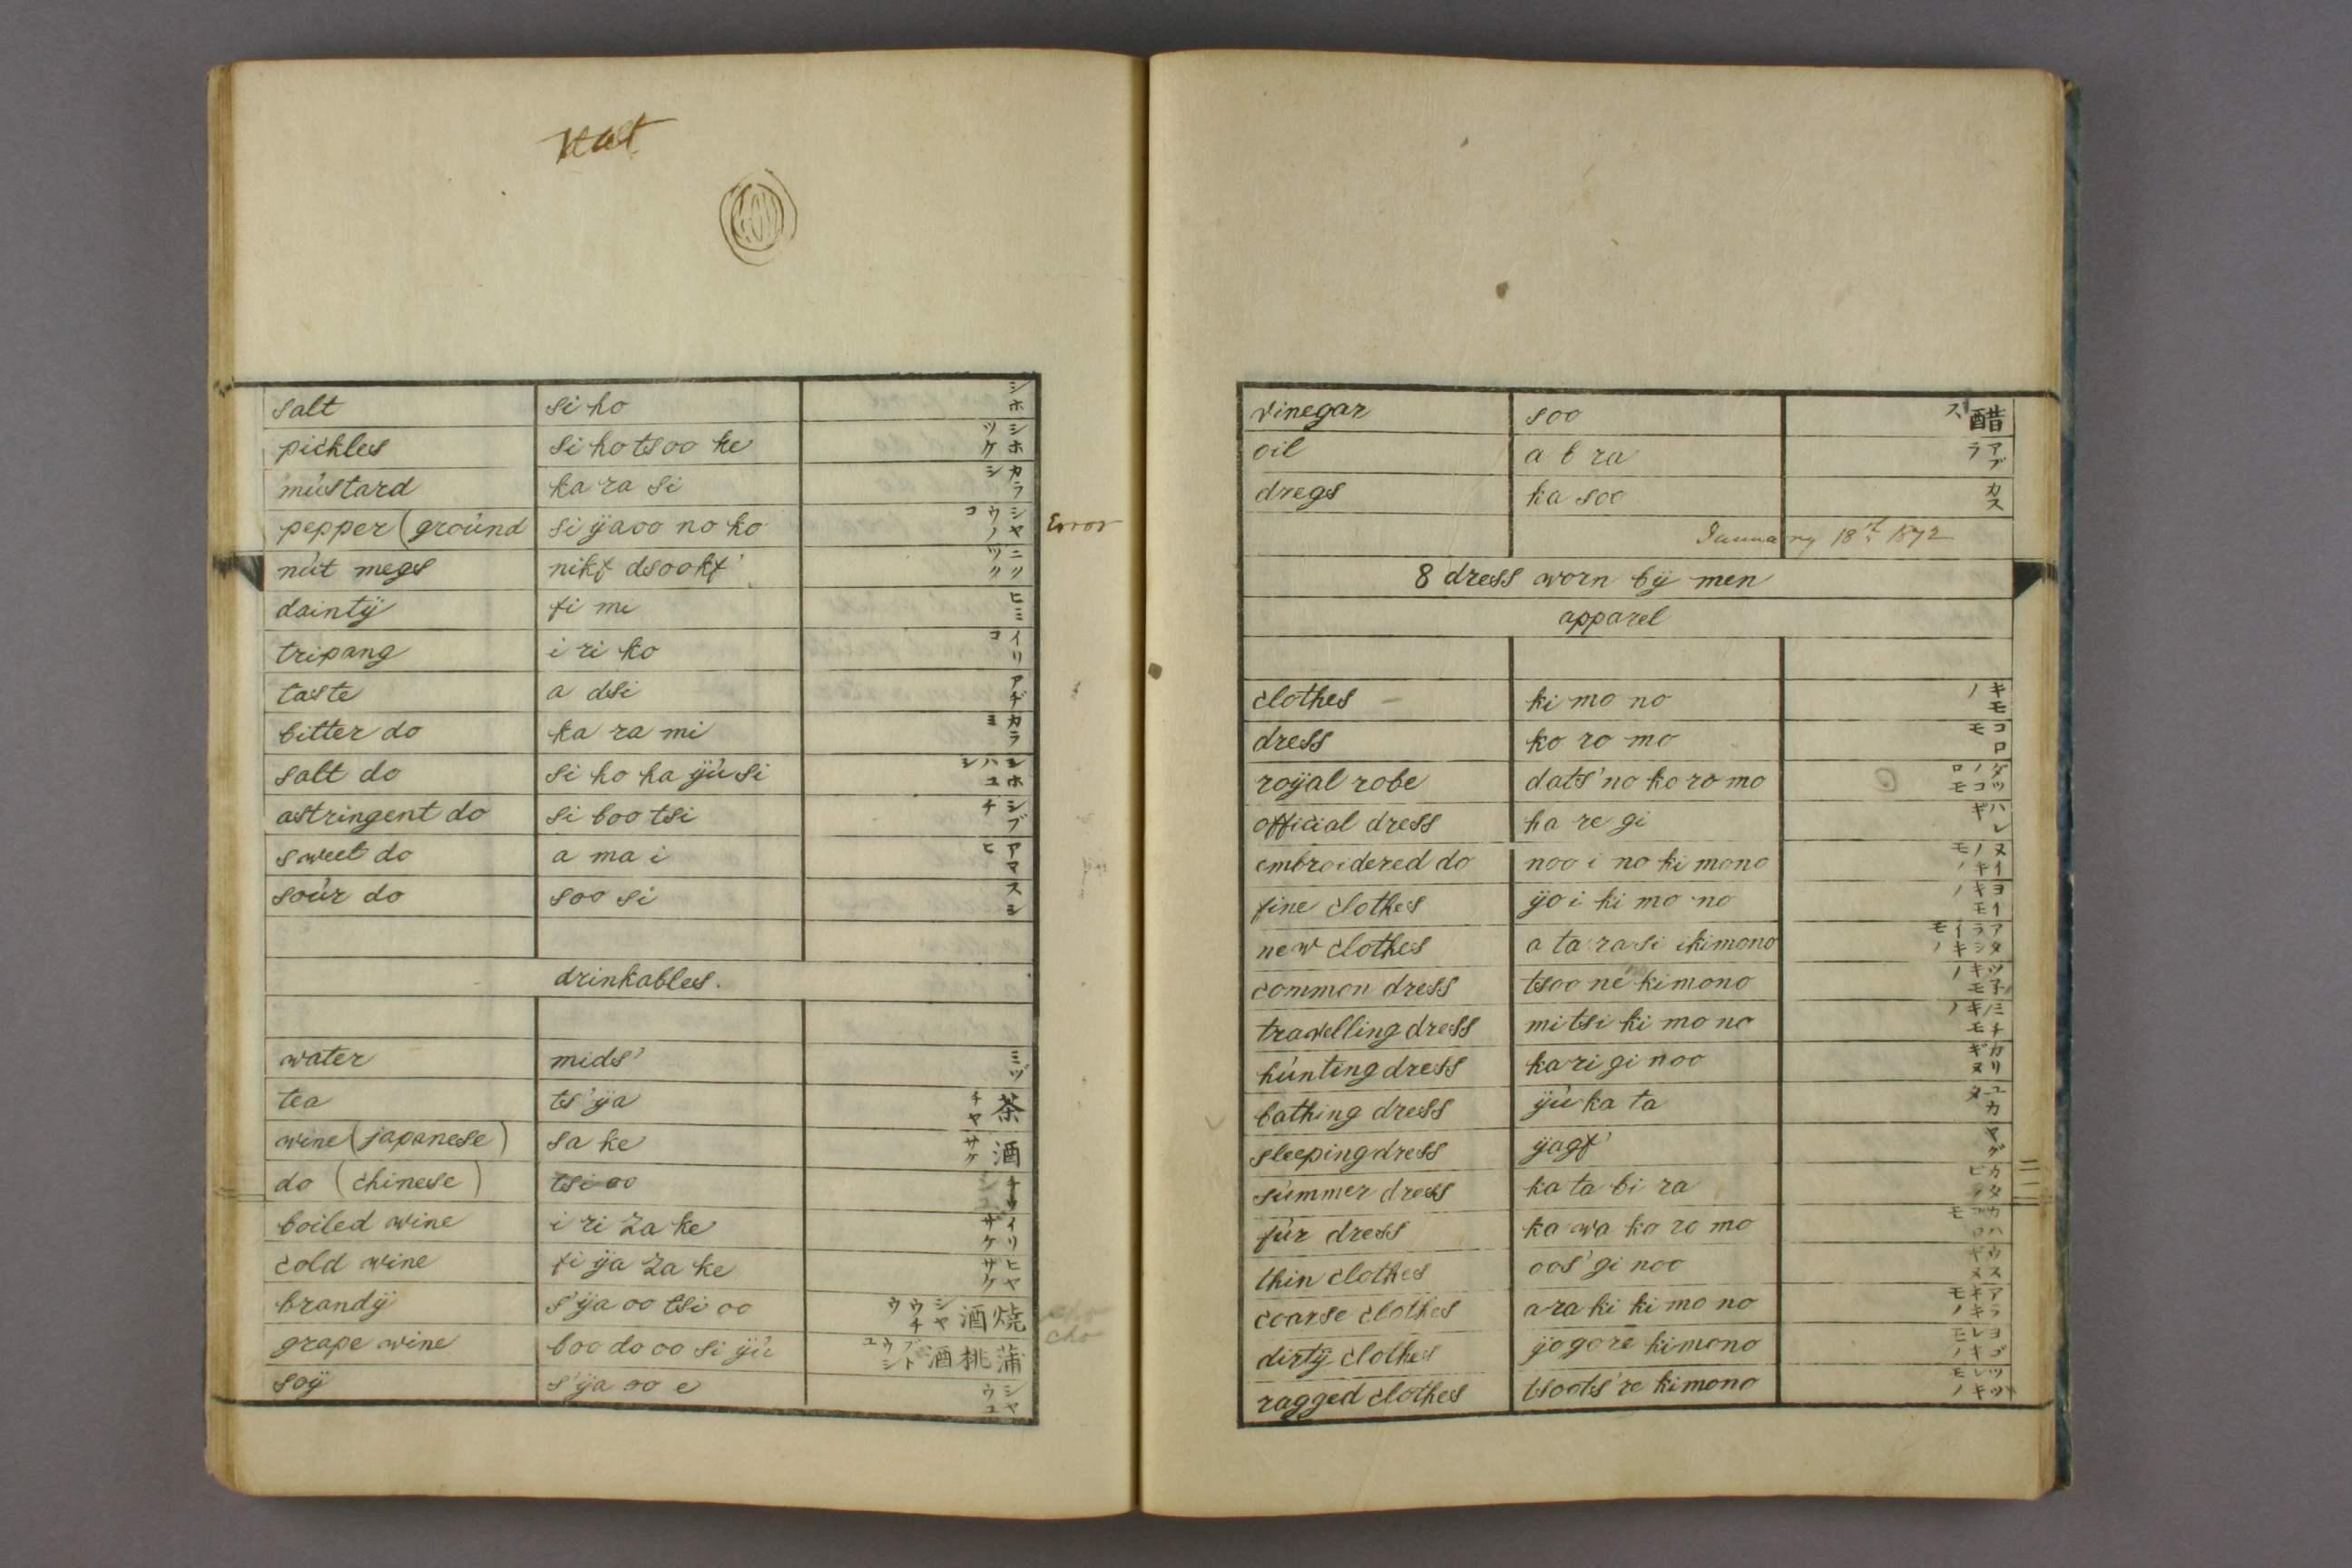 salt si ho シホ
pickles si ho tsoo ke シホツケ
mústard ka ra si カラシ
pepper (groúnd si ÿaoo no ko シヤウノコ Error
nút megs nikf dsookf' ニツ
daintÿ fi mi ヒミ
tripang i ri ko イリコ
taste a dsi アヂ
bitter do ka ra mi カラミ
salt do si ho ha ÿú si シホハユシ
astringent do si boo tsi シブチ
sweet do a ma i アマヒ
soúr do soo si スシ
drinkables.
water mids' ミヅ
tea ts'ÿa 茶 チヤ
wine (japanese) sa ke 酒 サケ
do (chinese) tsi oo チウ
boiled wine i ri za ke イリザケ
cold wine fi ÿa za ke ヒヤザケ
brandÿ s'ÿa oo tsi oo 焼酒 シヤウチウ
grape wine boo do oo si ÿú 蒲桃酒 ブトウシユ cho
soÿ s'ÿa oo e シヤウユ
vinegar soo 醋 ス
oil a b ra アブラ
dregs ka soo カス
January 18th 1872
8 dress worn bÿ men
apparel
clothes ki mo no キモノ
dress ko ro mo コロモ
roÿal robe dats' no ko ro mo ダツノコロモ
official dress ha re gi ハレギ
embroidered do noo i no ki mono ヌイノキモノ
fine clothes ÿo i ki mo no ヨイキモノ
new clothes a ta ra si i kimono アタラシイキモノ
common dress tsoo ne kimono ツ子キモノ
travelling dress mi tsi ki mo no ミチキモノ
húnting dress ka ri gi noo カリギヌ
bathing dress ÿú ka ta ユカタ
sleeping dress ÿagf' ヤグ
súmmer dress ka ta bi ra カタビラ
fúr dress ka wa ko ro mo カハコロモ
thin clothes oos' gi noo ウスギヌ
coarse clothes ara ki ki mo no アラキキモノ
dirtÿ clothes ÿo go re kimono ヨゴレキモノ
ragged clothes tsoots' re kimono ツヅレキモノ